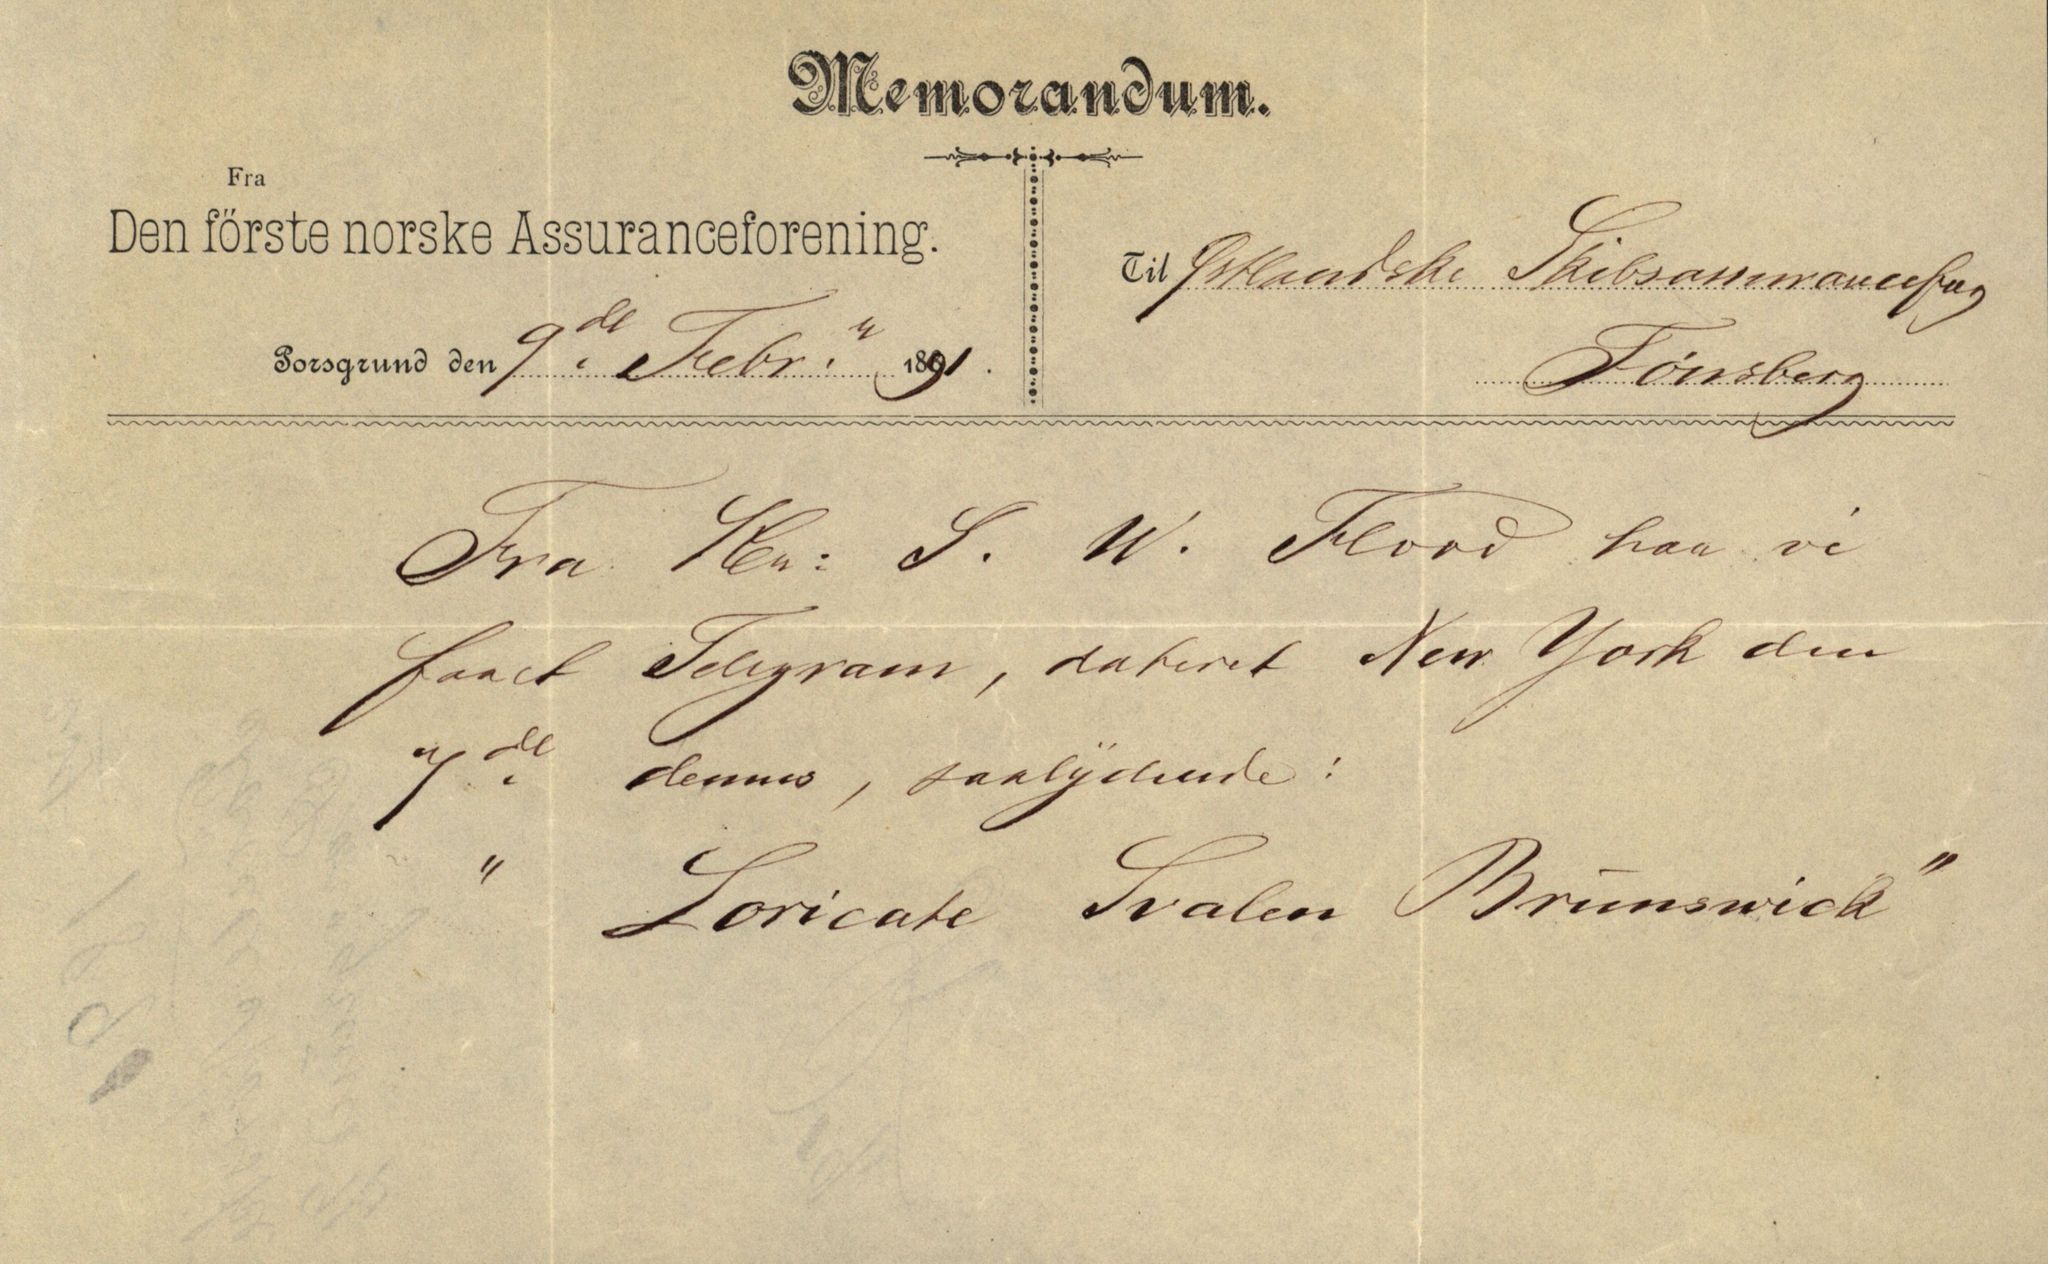 Memorandum.
Fra
Den förste norske Assuranceforening.
Til Østlandske Skibsassuranceforg
Porsgrund den 9de Febr. 1891.
Tønsberg
Fra Hr: S. W. Flood har vi
faaet Telegram, dateret New York den
7de dennes, saalÿdende:
" Loricate Svalen Brūnswick"